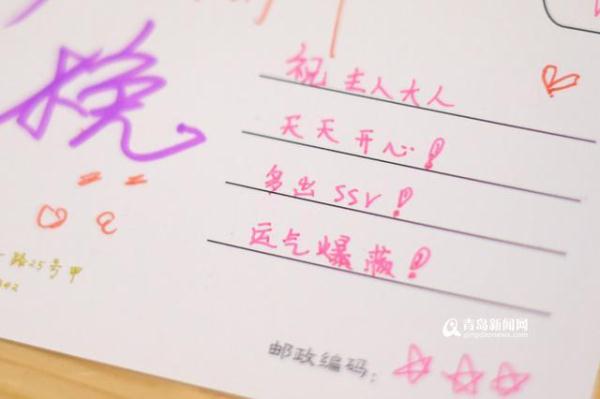 挽
祝主人大人
天天开心！
多出SSr！
运气爆薇！
路25号甲
邮政编码：
青岛新闻网
qingdaonews.com